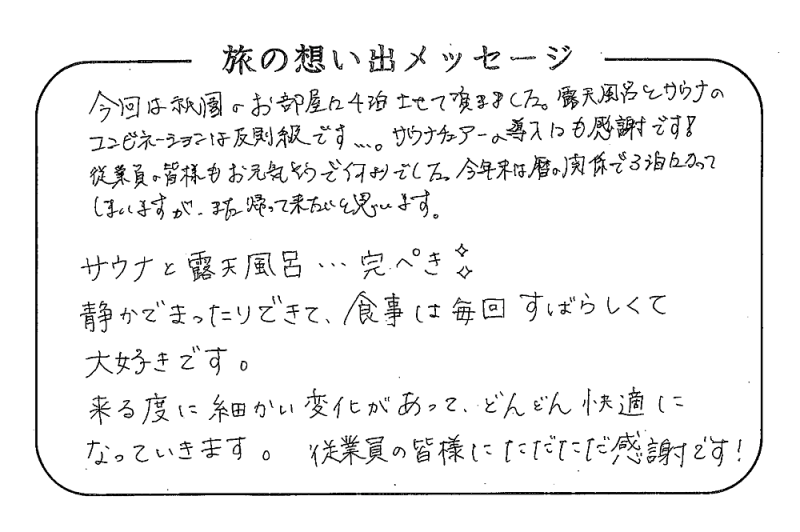 旅の想い出メッセージ
今回は祇園のお部屋に4泊させて頂きました。露天風呂とサウナの
コンビネーションは反則級です…。サウナチェアーの導入にも感謝です!
従業員の皆様もお元気そうで何よりでした。今年末は暦の関係で3泊になって
しまいますが、また帰って来たいと思います。
サウナと露天風呂…完ぺき✧✧
静かでまったりできて、食事は毎回すばらしくて
大好きです。
来る度に細かい変化があって、どんどん快適に
なっていきます。 従業員の皆様にただただ感謝です!